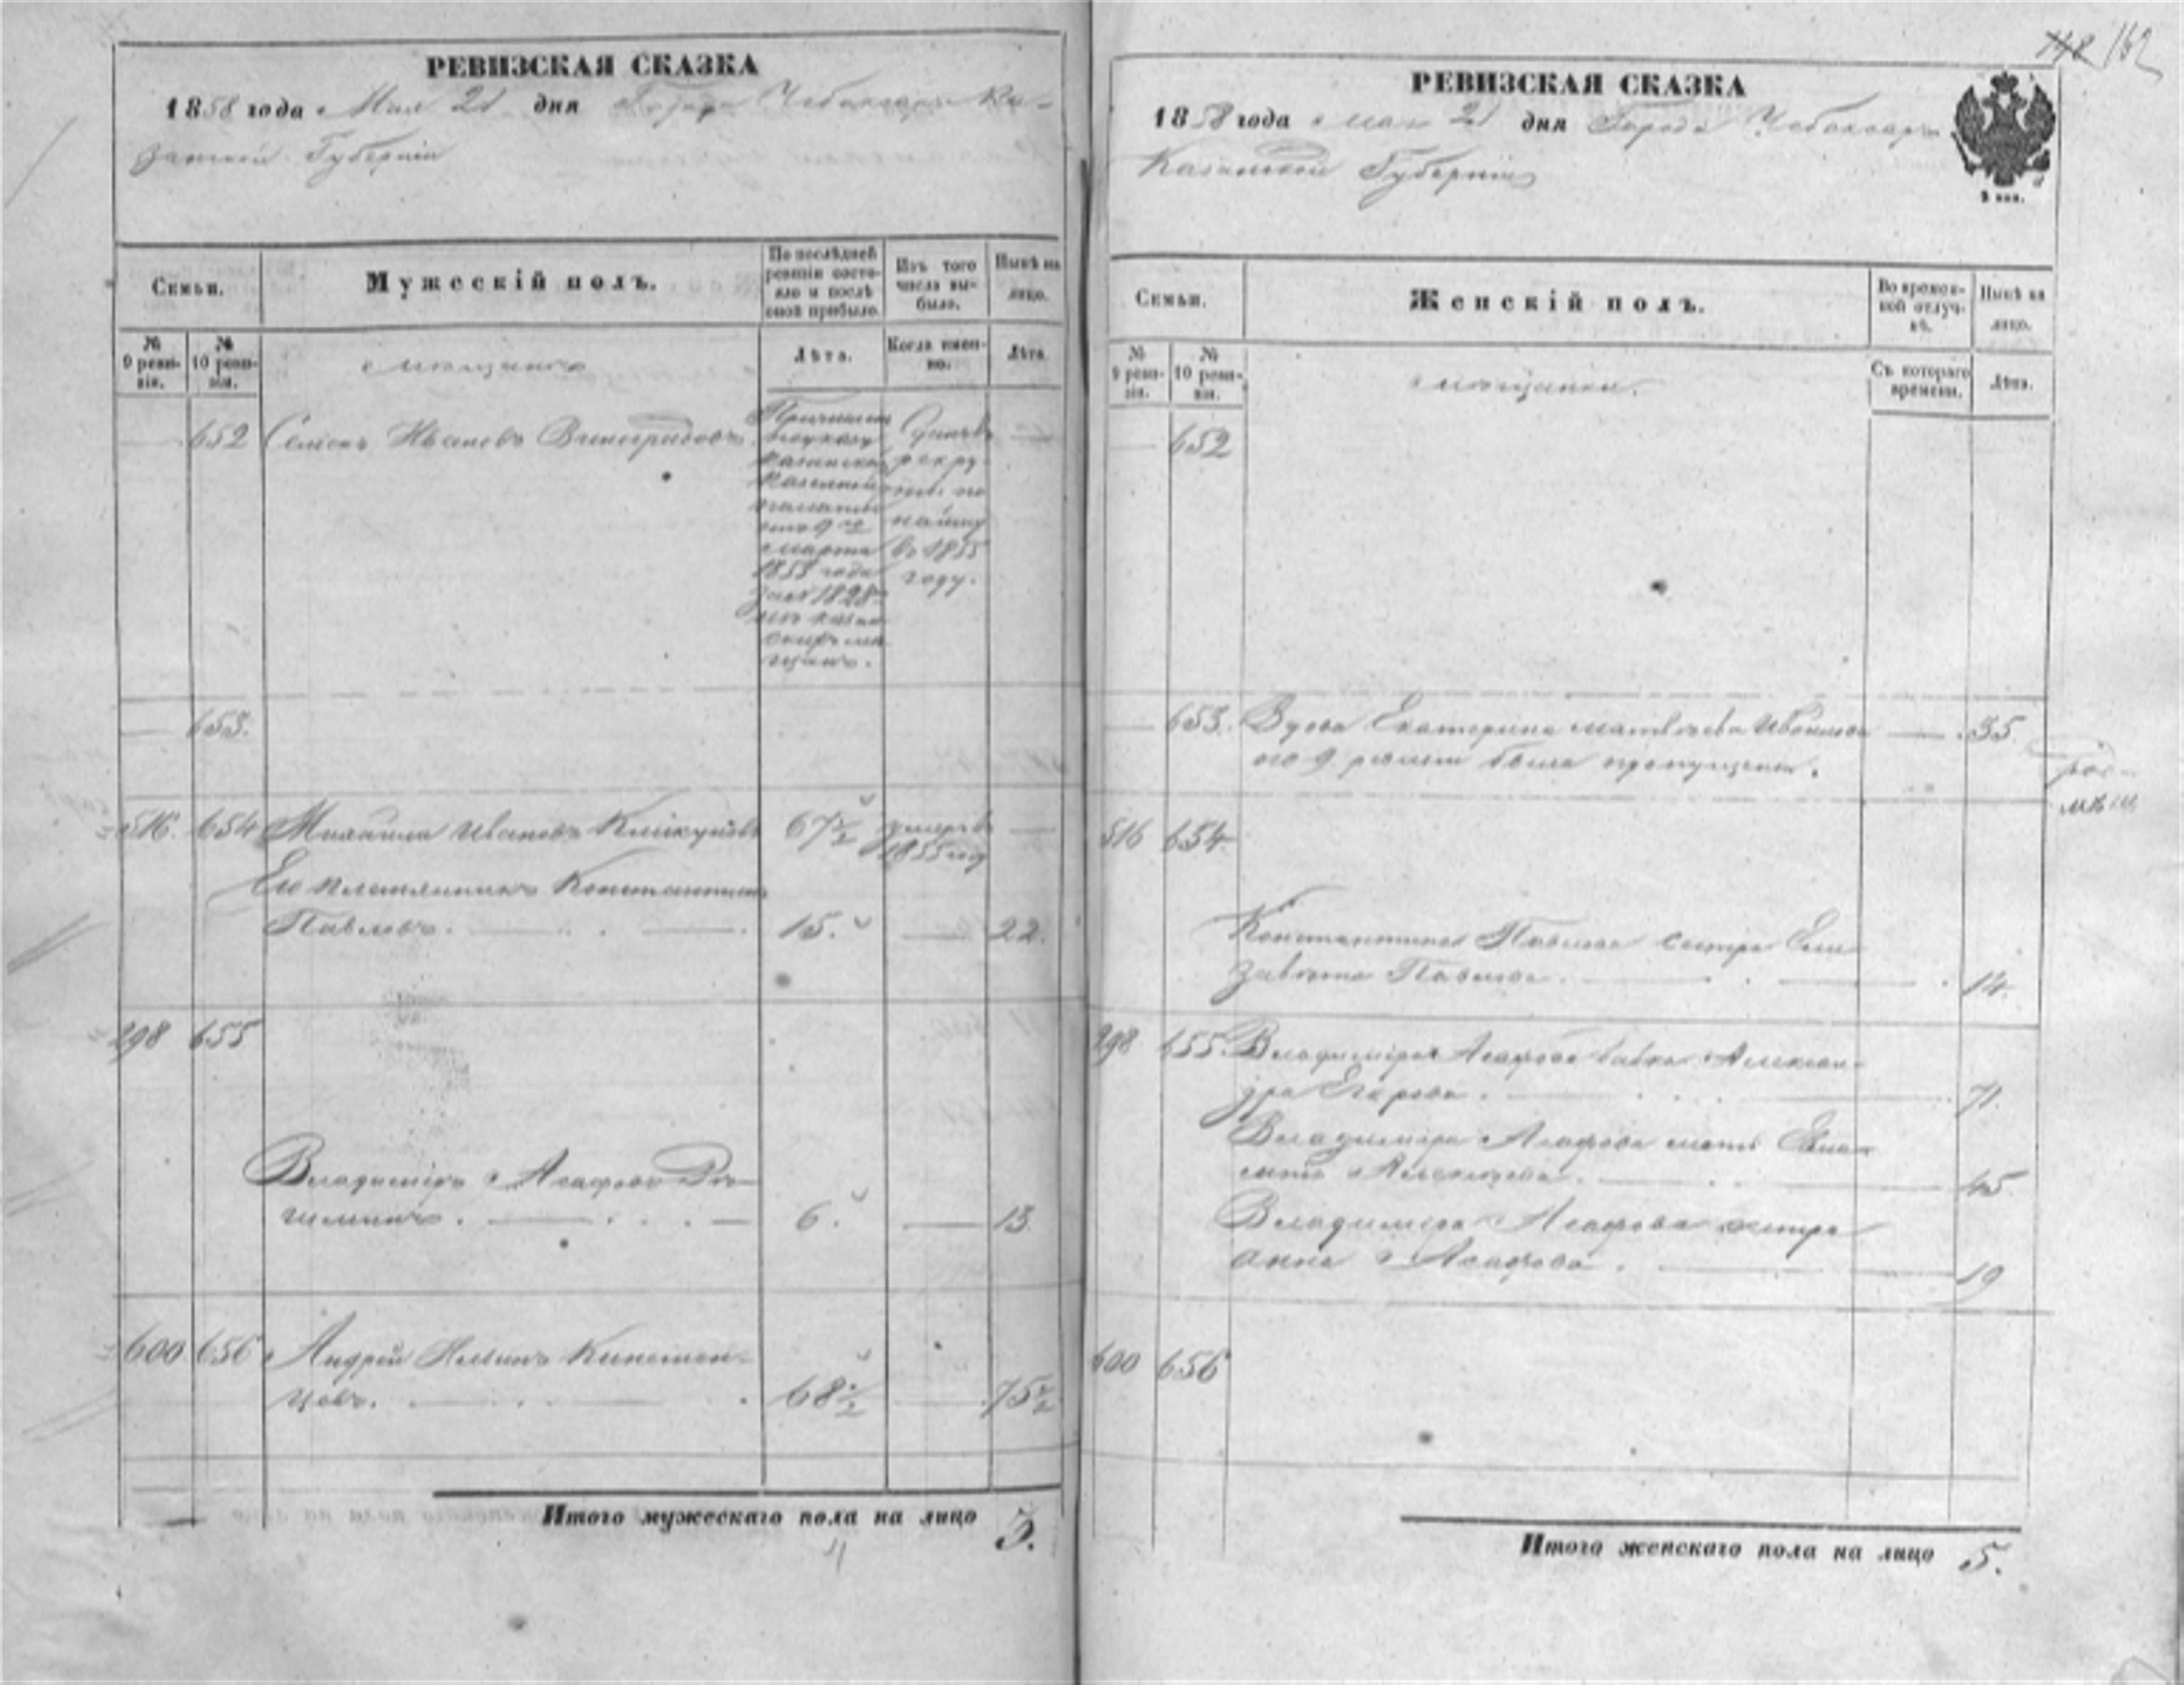 РЕВИЗСКАЯ СКАЗКА
1858 года Мая 21 дня Города Чебоксаръ Ка-
занской Губерніи
Семьи.
Мужескій полъ.
По послѣдней ревизіи состо-
яло и послѣ
оной прибыло.
Изъ того
числа вы-
было.
Нынѣ на
лицо.
№
9 реви-
зіи.
№
10 реви-
зіи.
мещане
Лѣта.
Когда имен-
но.
Лѣта.
652 Иванов Виноградовъ
Причислен
по указу
Казанской
Казенной
палаты
отъ 9го
марта
1853 года
за № 1828
изъ казан
скихъ ме
щанъ.
рекру
ты по
найму
въ 1855
году.
653.
516. 654 Михайла Ивановъ 67½ умеръ въ
1855 году
Его племянникъ Константинъ
Павловъ. 15. 22.
298 655
Владимиръ Асафовъ
6. 13.
600 656 Андрей
68½ 75½
Итого мужескаго пола на лицо 3.
4
148 162
РЕВИЗСКАЯ СКАЗКА
1858 года мая 21 дня Города Чебоксаръ
Казанской Губерніи
3 коп.
Семьи.
Женскій полъ.
Во времен-
ной отлуч-
кѣ.
Нынѣ на
лицо.
№
9 реви-
зіи.
№
10 реви-
зіи.
мещанки.
Съ котораго
времени.
Лѣта.
652
653. Вдова Екатерина Матвѣева 35.
по 9 ревизіи была пропущена.
516 654
Константина Павлова сестра Ели
завета Павлова. 14.
298 655. Владиміра Асафова бабка Алексан-
дра Егорова. 71.
Владиміра Асафова мать
Алексѣева. 45
Владиміра Асафова сестра
Анна Асафова. 19
600 656
Итого женскаго пола на лицо 5.